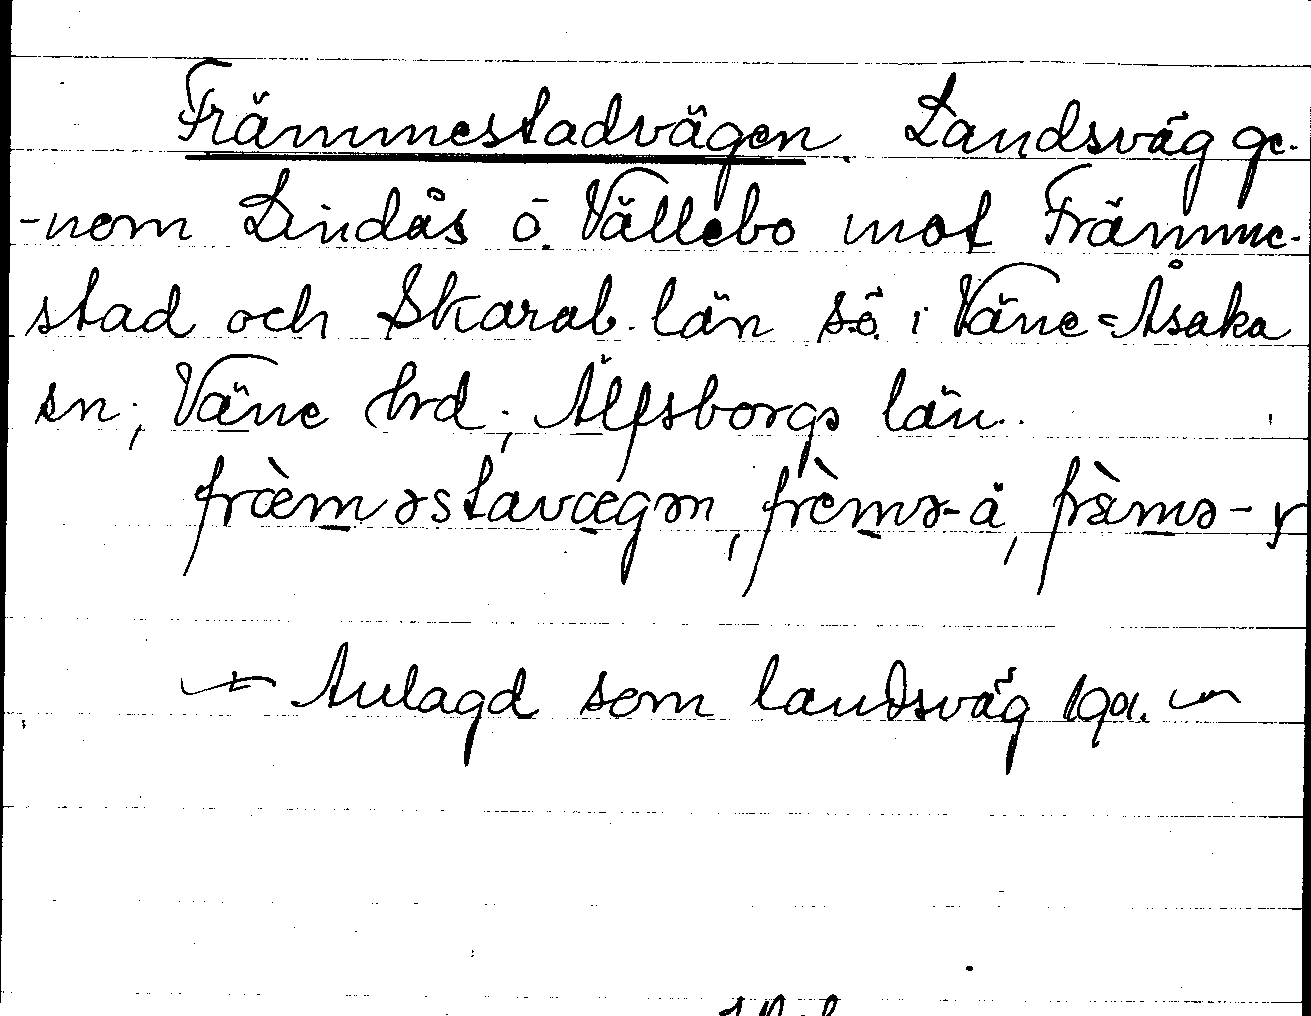 Främmestadvägen. Landsväg ge-
-nom Lindås ö. Vällebo mot Främme-
stad och Skarab. län sö. i Väne=Åsaka
sn; Väne hrd; Älfsborgs län.
fræ̀məstavægən, frèmə-å, fràmə-
Anlagd som landsväg 1901.